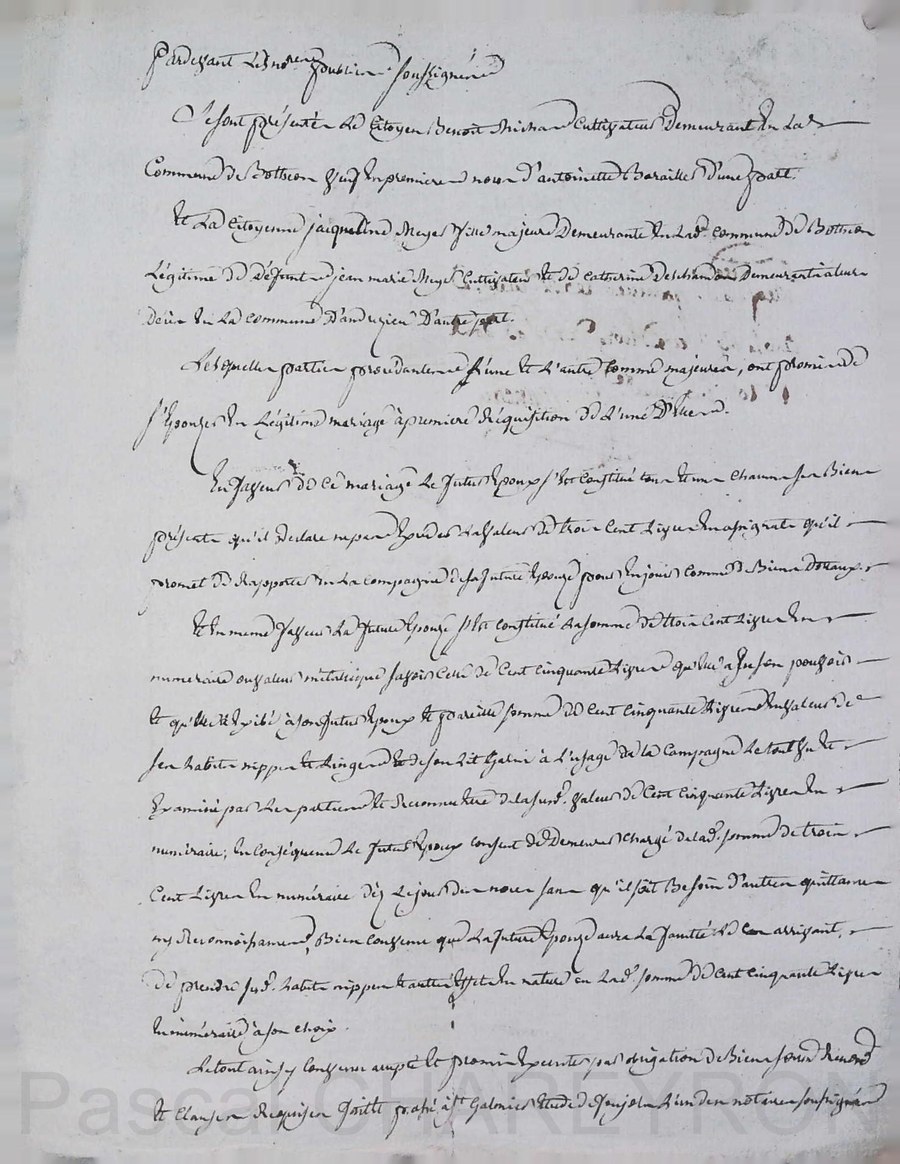 Pardevant Les no.res publics soussignés
Se sont présentés Le Citoyen Benoit Michard Cultivateur Demeurant En La
Commune de Botheon veuf En premieres noces d'antoinette Barailler d'une part.
Et La Citoyenne jacqueline Meyer fille majeure Demeurante En Lad.e Commune de Botheon
Légitime de Défunt jean marie Meyer Cultivateur Et de Catherine Demeurante
En La Commune D'andrezieu D'autre part.
Lesquelles parties procedantes L'une Et L'autre Comme majeures, ont promis de
s'Epouser En Légitime mariage à première Réquisition de L'une D'Elles.
En faveur de Ce mariage Le futur Epoux s'Est Constitué tous Et uns Chacuns ses Biens
présents qu'il declare ne pas Exéder La valeur de trois Cent Livres En assignats qu'il
promet de Rapporter En La Compagnie de sa future Epouse pour En jouir Comme de Biens Dotaux.
Et En meme faveur La future Epouse s'Est Constitué La somme de trois Cent Livres En
numéraire ou valeur métalique savoir Celle de Cent Cinquante Livres qu'Elle a En son pouvoir
Et qu'Elle a Exibé à son futur Epoux Et pareille somme de Cent Cinquante Livres En valeur de
ses habits nippes Et Linges Et de son Lit Garni à L'usage de la Campagne Le tout vu Et
Examiné par Les parties Et Reconnu Etre de la susd. valeur de Cent Cinquante Livres En
numéraire; En Conséquence Le futur Epoux Consent de Demeurer Chargé de lad. somme de trois
Cent Livres En numéraire dès Le jour des noces sans qu'il soit Besoin d'autres quittances
ny Reconnoissances, Bien Convenu que La future Epouse aura La faculté Le Cas arrivant,
de prendre susd. habits nippes Et autres Effets En nature ou Lad. somme de Cent Cinquante Livres
En numéraire à son choix.
Le tout ainsy Convenu accepté Et promis Executer par obligation de Biens
Et Clauses Requises fait Et passé à St Galmier Etude de L'un des notaires soussignés
Pascal CHAREYRON